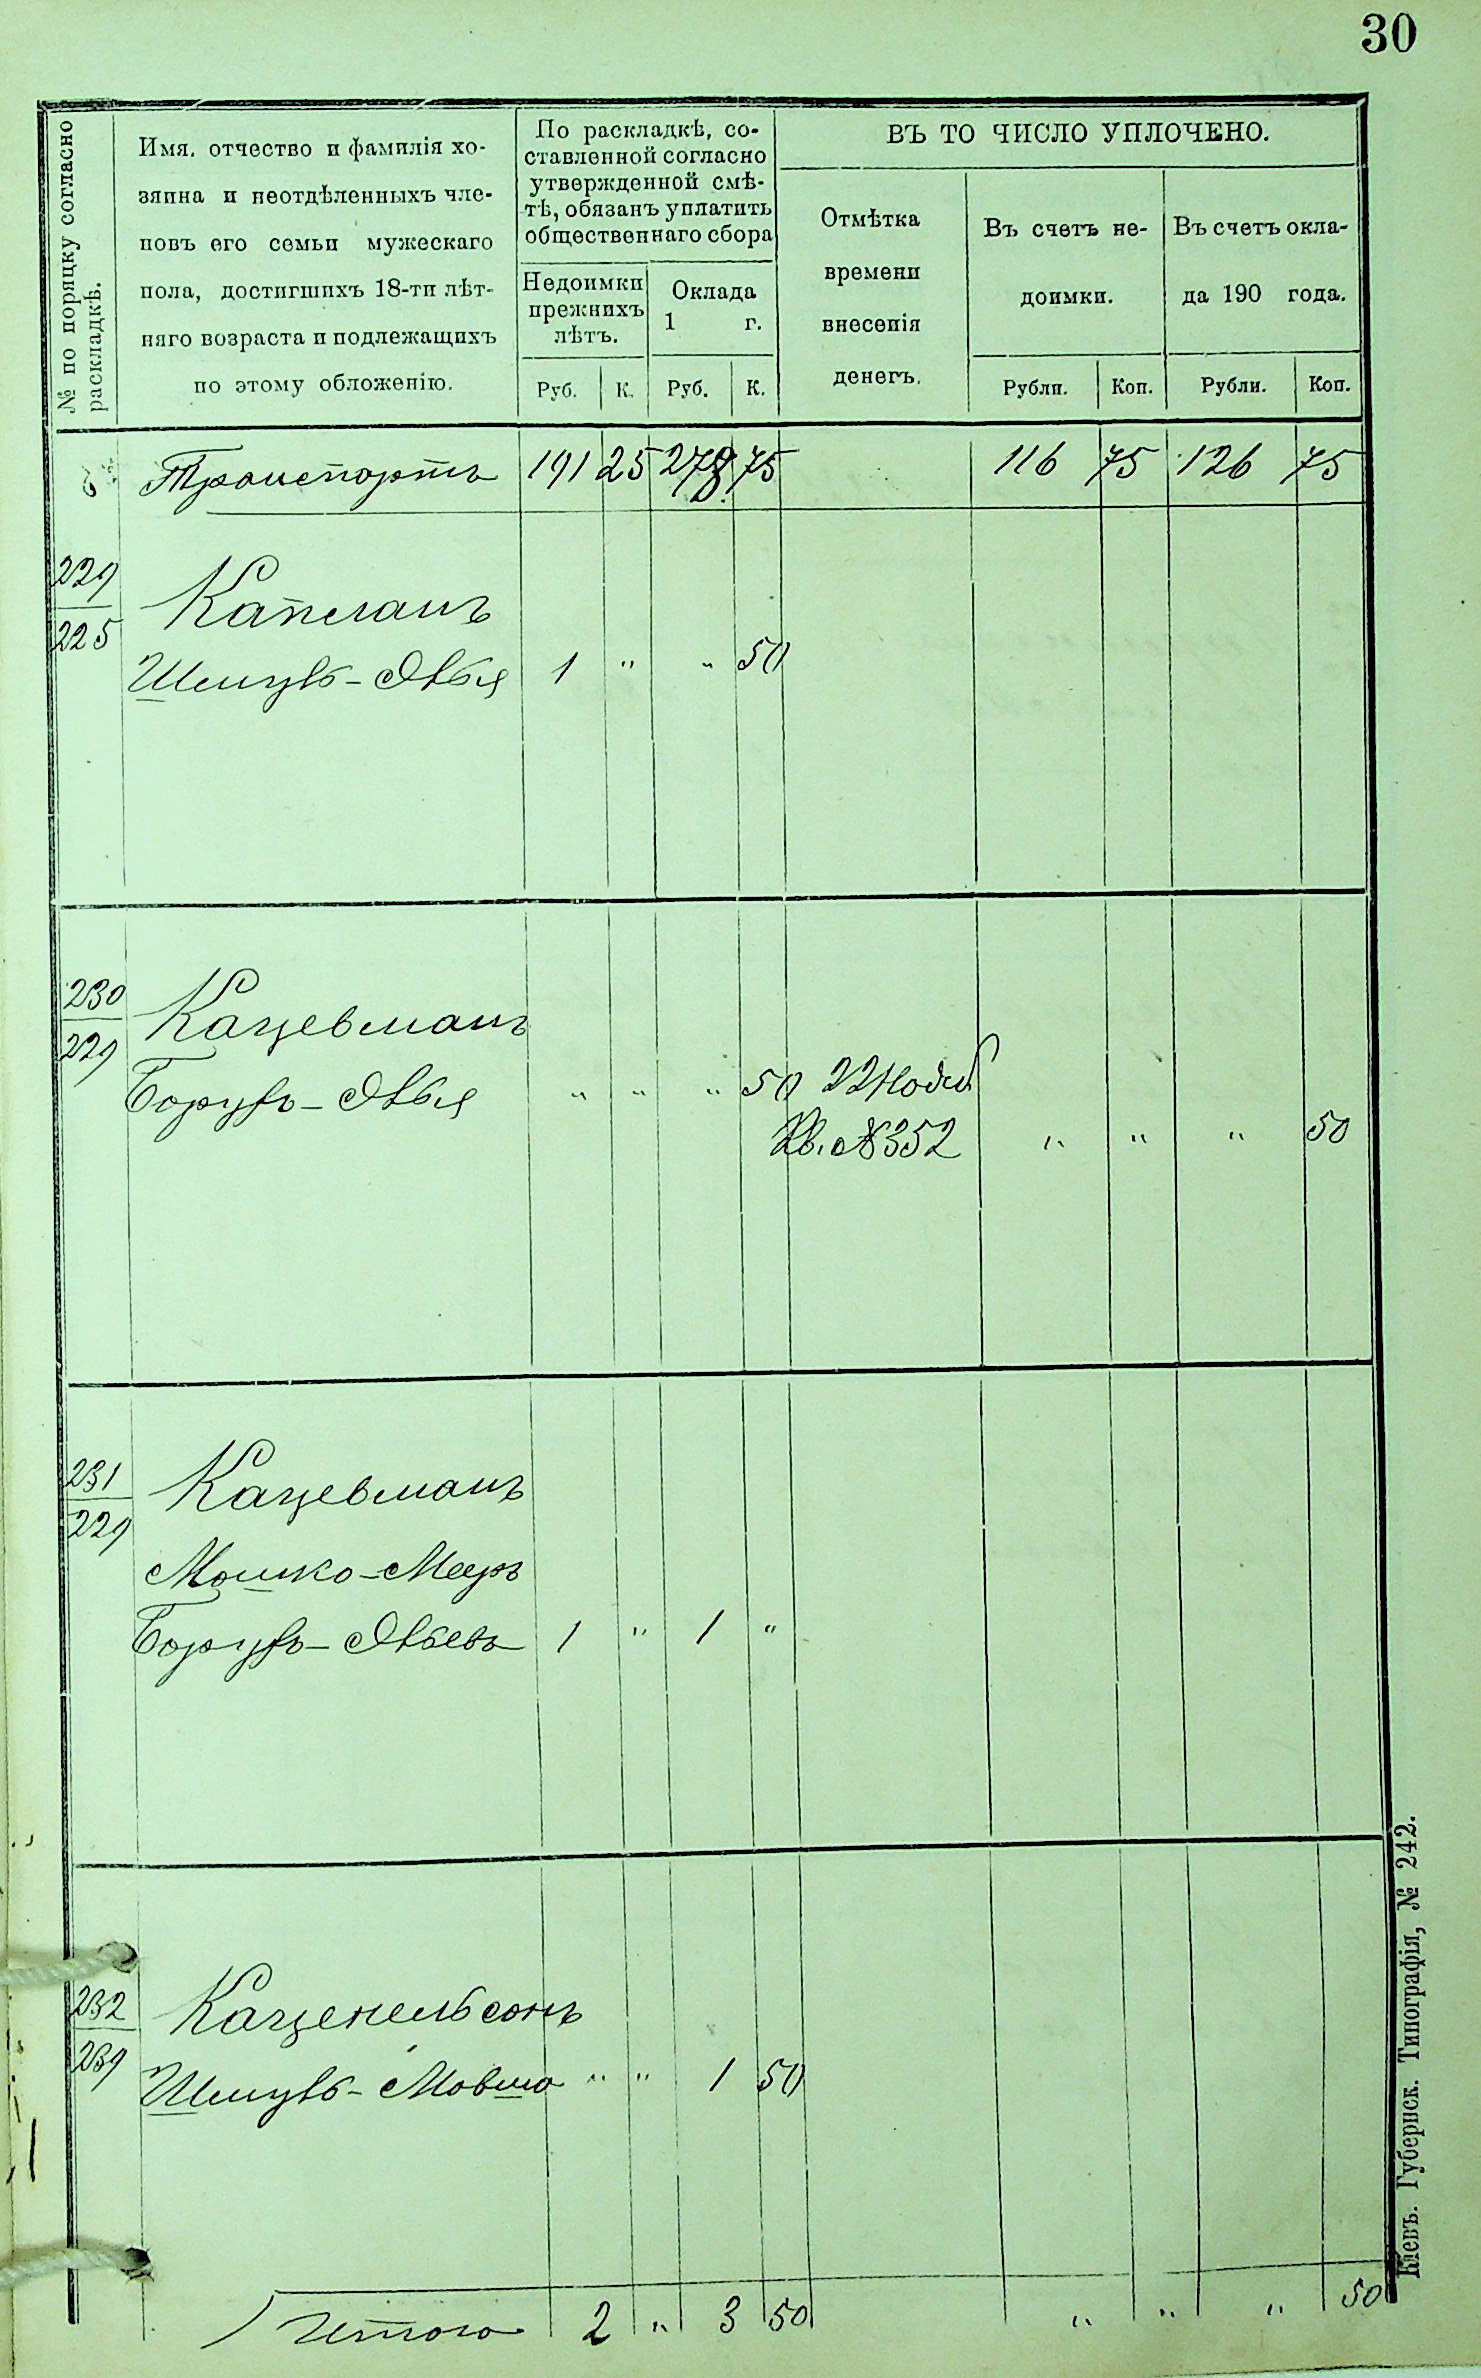 30
№ по порядку согласно
раскладкѣ.
Имя, отчество и фамилія хо-
зяина и неотдѣленныхъ чле-
новъ его семьи мужескаго
пола, достигшихъ 18-ти лѣт-
няго возраста и подлежащихъ
по этому обложенію.
По раскладкѣ, со-
ставленной согласно
утвержденной смѣ-
тѣ, обязанъ уплатить
общественнаго сбора
Недоимки
прежнихъ
лѣтъ.
Оклада
1 г.
ВЪ ТО ЧИСЛО УПЛОЧЕНО.
Отмѣтка
времени
внесенія
денегъ.
Въ счетъ не-
доимки.
Въ счетъ окла-
да 190 года.
Руб. К. Руб. К. Рубли. Коп. Рубли. Коп.
Транспортъ 191 25 278 75 116 75 126 75
229
225
Капланъ
Шмуль-Лейб 1 " " 50
230
229
Кацевманъ
Борухъ-Лейб " " " 50 22 Нояб
Кв. №352 " " " 50
231
229
Кацевманъ
Мошко-Мееръ
Борухъ-Лейбовъ 1 " 1 "
232
239
Каценельсонъ
Шмуль-Мовша " " 1 50
Итого 2 " 3 50 " " " 50
Кіевъ. Губернск. Типографія, № 242.